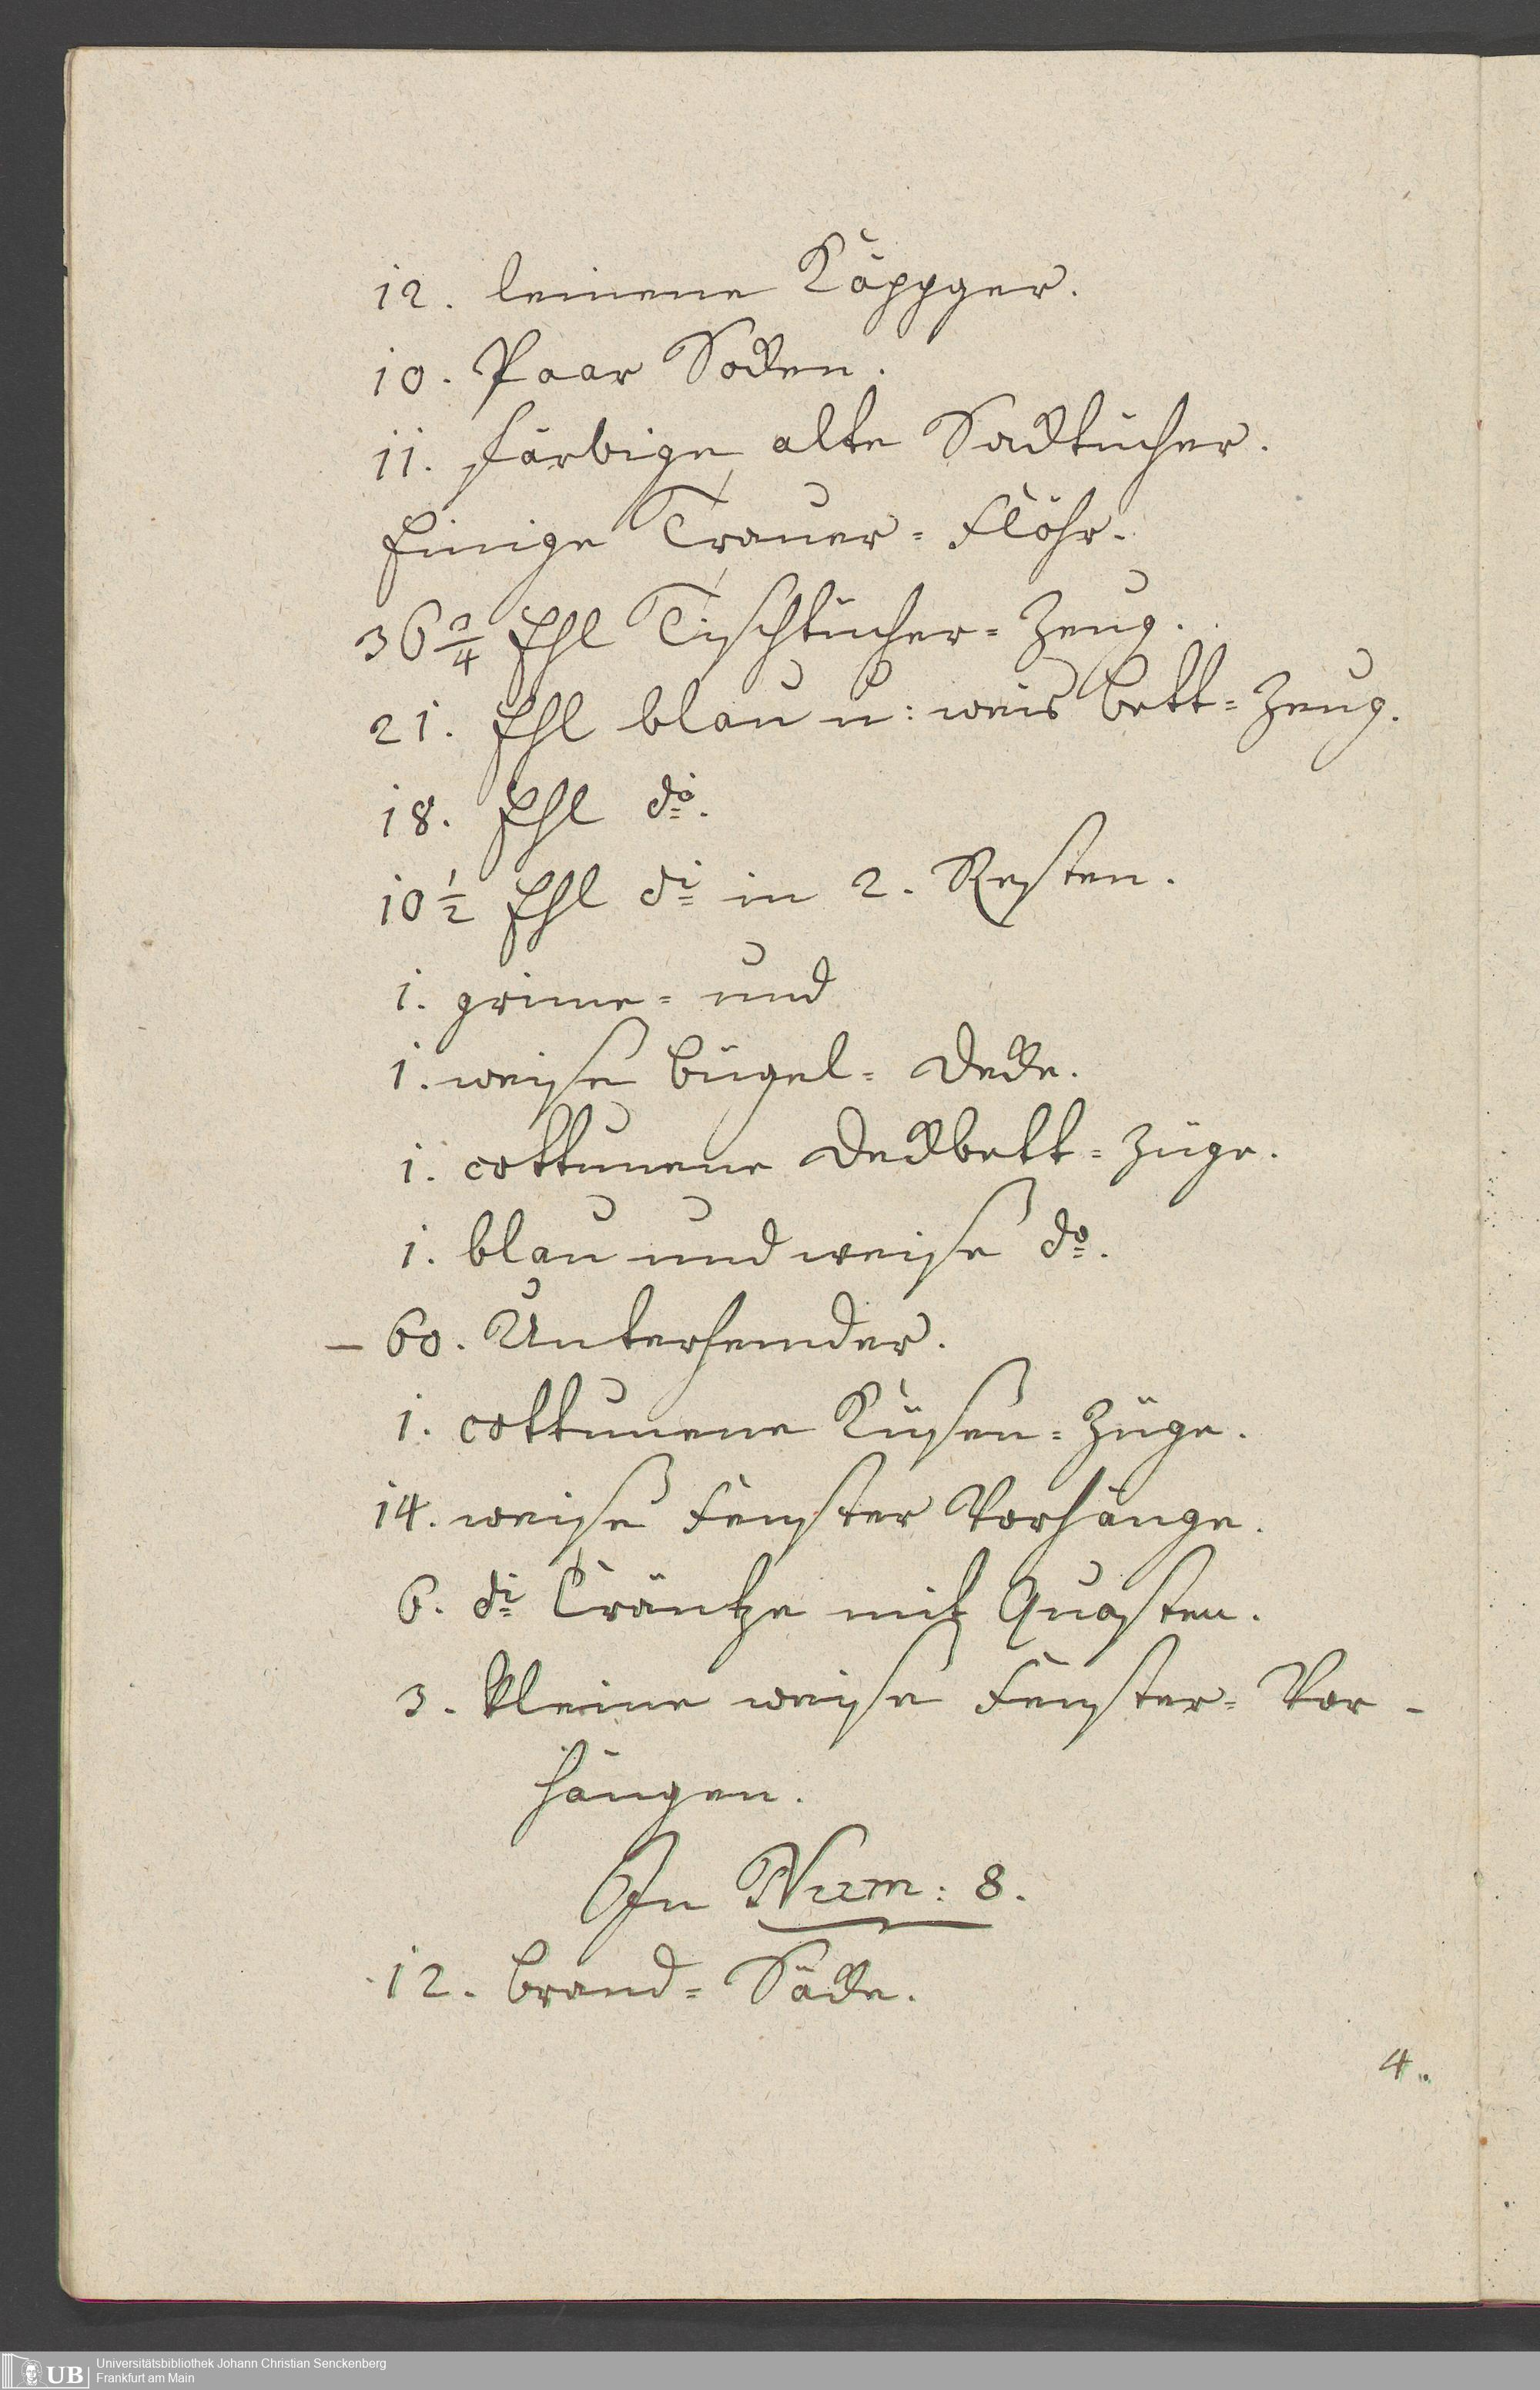 12. leinene Käppger.
10. Paar Socken.
11. färbige alte Sacktücher.
Einige Trauer=Flöhr.
36 3/4 Ehl Tischtücher=Zeug.
21. Ehl blau u: weis Bett=Zeug.
18. Ehl do.
10 1/2 Ehl do in 2. Resten.
1. grüne= und
1. weise Bügel=Decke.
1. cottunene Deckbett=Züge.
1. blau und weise do.
– 60. Unterhemder.
1. cottunene Küsen=Züge.
14. weise Fenster Vorhänge.
6. do Cräntze mit Quasten.
3. kleine weise Fenster=Vor-
hängen.
In Num: 8.
12. Brand=Säcke.
4.
UB
Universitätsbibliothek Johann Christian Senckenberg
Frankfurt am Main